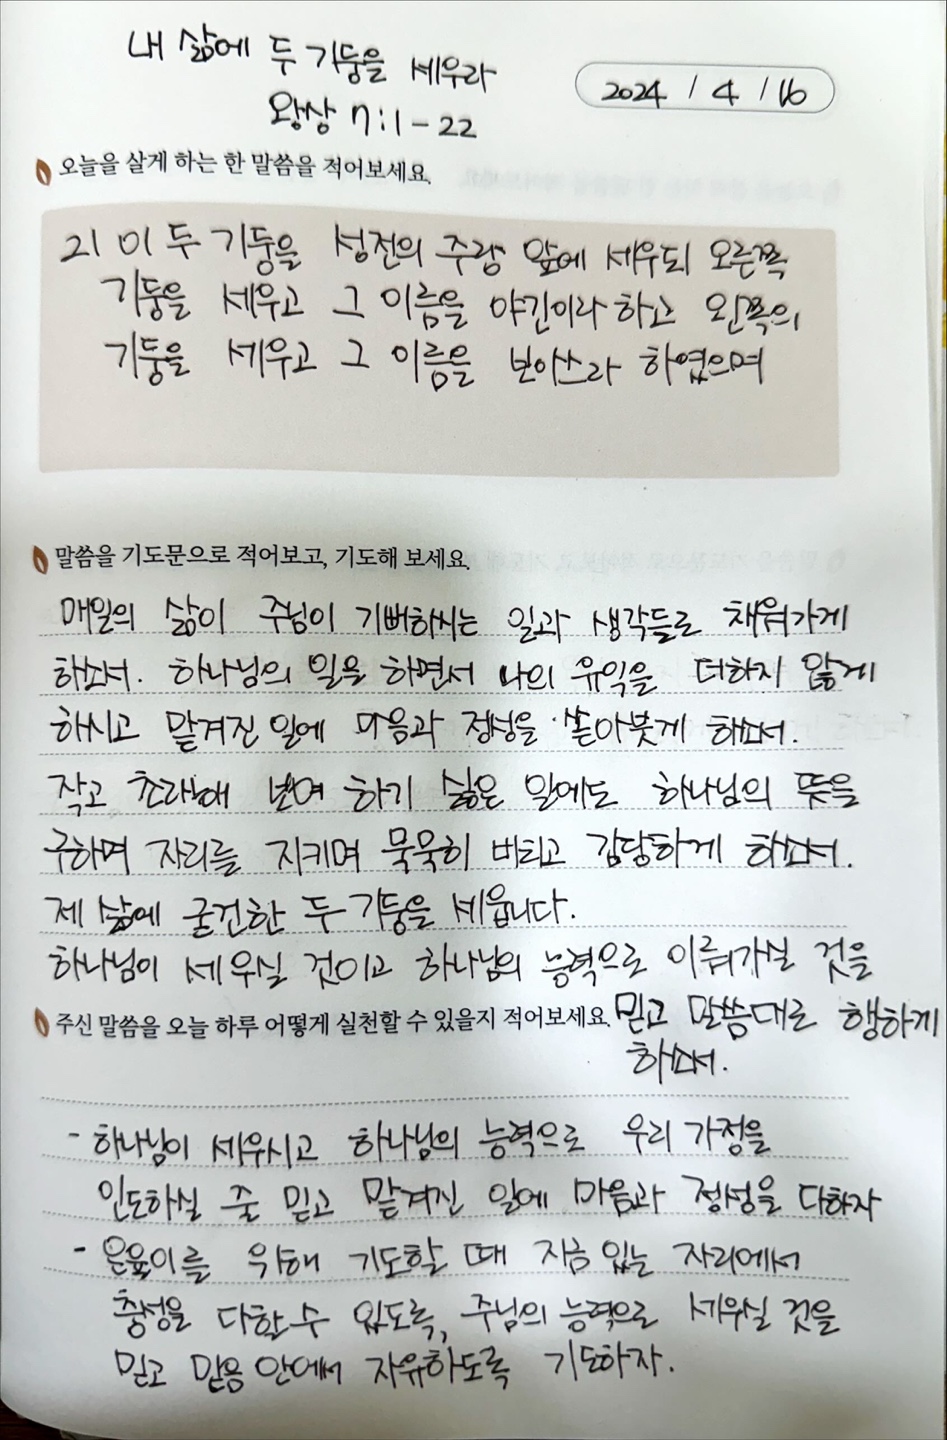 내 삶에 두 기둥을 세우라
왕상 7:1-22
2024 / 4 / 16
오늘을 살게 하는 한 말씀을 적어보세요.
21 이 두 기둥을 성전의 주랑 앞에 세우되 오른쪽
기둥을 세우고 그 이름을 야긴이라 하고 왼쪽의
기둥을 세우고 그 이름을 보아스라 하였으며
말씀을 기도문으로 적어보고, 기도해 보세요.
매일의 삶이 주님이 기뻐하시는 일과 생각들로 채워가게
하소서. 하나님의 일을 하면서 나의 유익을 더하지 않게
하시고 맡겨진 일에 마음과 정성을 쏟아붓게 하소서.
작고 초라해 보여 하기 싫은 일에도 하나님의 뜻을
구하며 자리를 지키며 묵묵히 버티고 감당하게 하소서.
제 삶에 굳건한 두 기둥을 세웁니다.
하나님이 세우실 것이고 하나님의 능력으로 이뤄가실 것을
주신 말씀을 오늘 하루 어떻게 실천할 수 있을지 적어보세요. 믿고 말씀대로 행하게
하소서.
- 하나님이 세우시고 하나님의 능력으로 우리 가정을
인도하실 줄 믿고 맡겨진 일에 마음과 정성을 다하자
- 온유이를 위해 기도할 때 지금 있는 자리에서
충성을 다할 수 있도록, 주님의 능력으로 세우실 것을
믿고 믿음 안에서 자유하도록 기도하자.